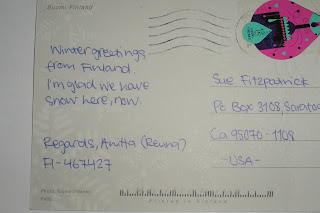 Suomi Finland
Winter greetings
from Finland.
I'm glad we have
snow here, now.
Regards, Anitta (Reuna)
FI-467427
Sue Fitzpatrick
Po Box 3108, Saratog
Ca 95070-1108
-USA-
Printed in Finland